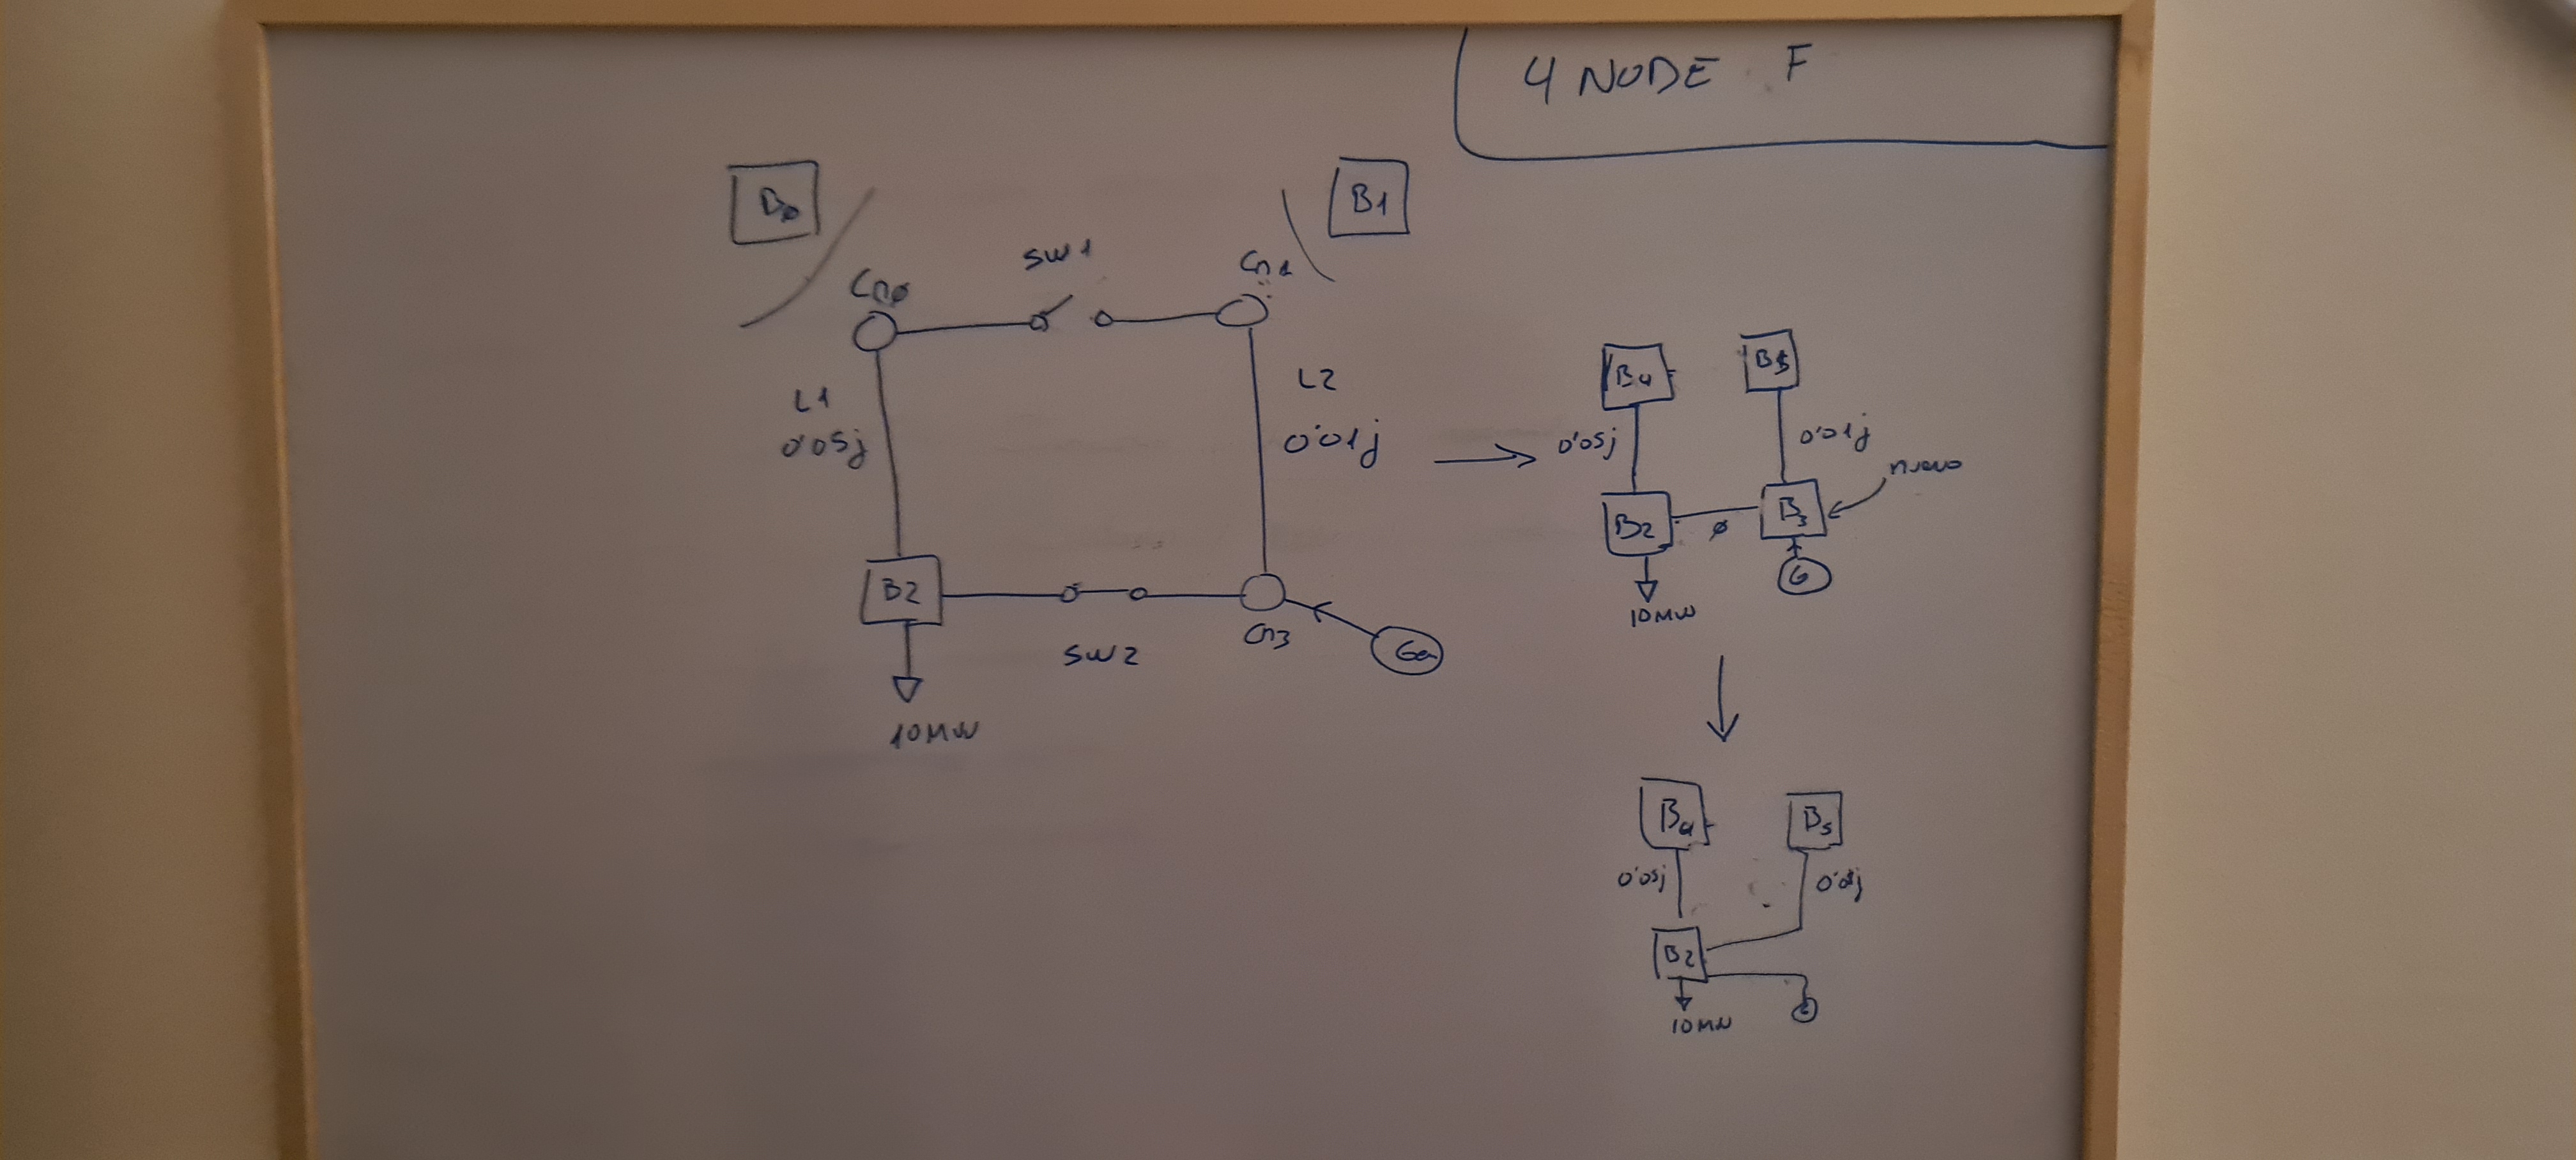 4 NODE F
B0
B1
SW1
Cn0
Cn1
L1
0'05j
L2
0'01j
B2
SW2
Cn3
Gen
10MW
B4
B5
0'05j
0'01j
nuevo
B2
0
B3
G
10MW
B4
B5
0'05j
0'01j
B2
G
10MW